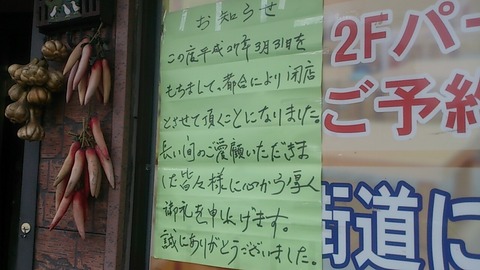 お知らせ
この度平成27年3月31日を
もちまして、都合により閉店
とさせて頂くことになりました。
長い間のご愛顧いただきま
した皆々様に心から厚く
御礼を申し上げます。
誠にありがとうございました。
2Fパー
ご予約
街道に